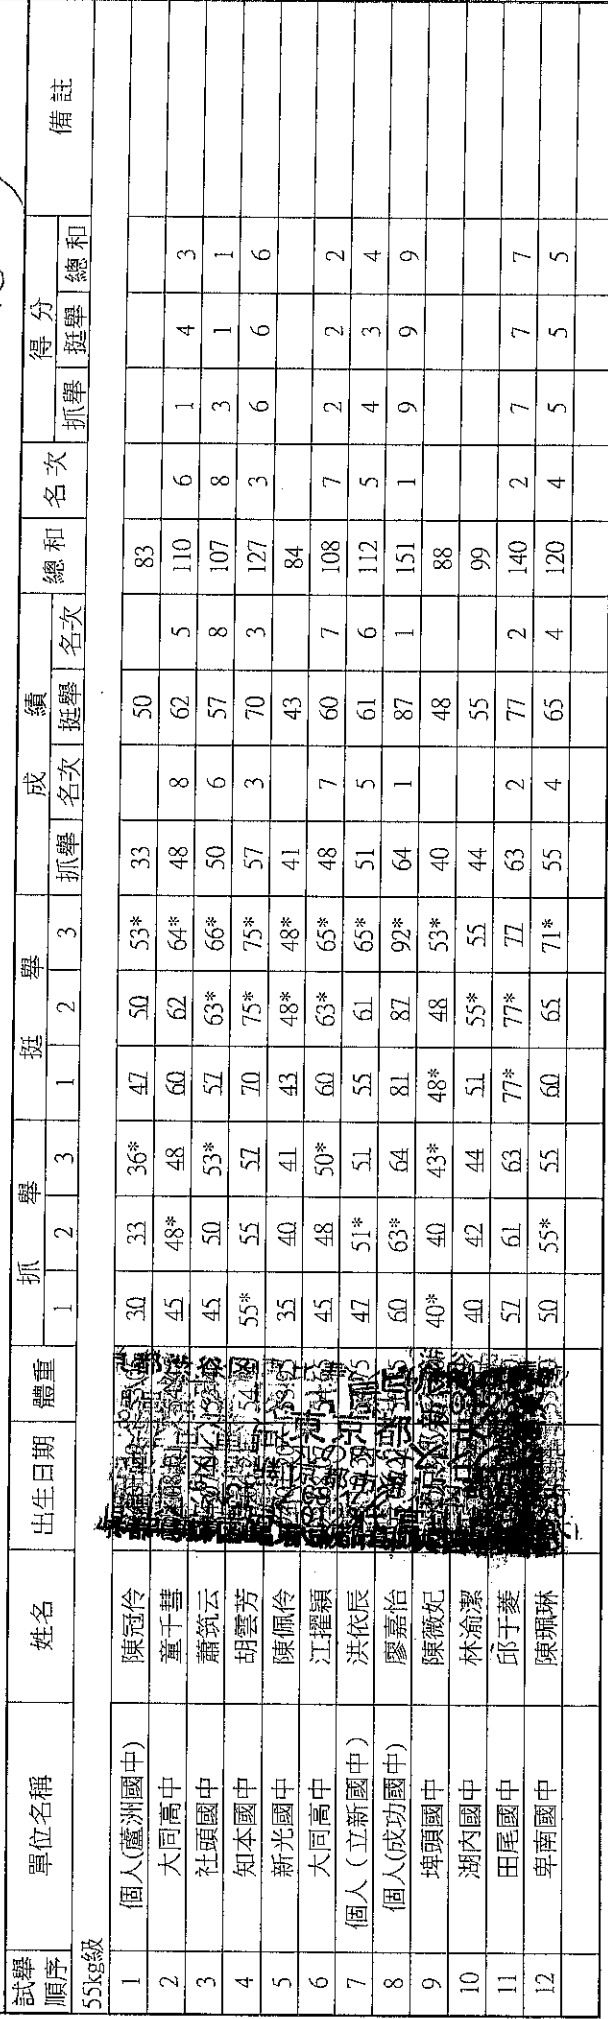 試舉順序 單位名稱 姓名 出生日期 體重 抓舉 挺舉 成績 總和 名次 得分 備註
1 2 3 1 2 3 抓舉 名次 挺舉 名次 抓舉 挺舉 總和
55kg級
1 個人(蘆洲國中) 陳冠伶 30 33 36* 47 50 53* 33 50 83
2 大同高中 童千彗 45 48* 48 60 62 64* 48 8 62 5 110 6 1 4 3
3 社頭國中 蕭筑云 45 50 53* 57 63* 66* 50 6 57 8 107 8 3 1 1
4 知本國中 胡雲芳 55* 55 57 70 75* 75* 57 3 70 3 127 3 6 6 6
5 新光國中 陳佩伶 35 40 41 43 48* 48* 41 43 84
6 大同高中 江擢穎 45 48 50* 60 63* 65* 48 7 60 7 108 7 2 2 2
7 個人（立新國中） 洪依辰 47 51* 51 55 61 65* 51 5 61 6 112 5 4 3 4
8 個人(成功國中) 廖嘉怡 60 63* 64 81 87 92* 64 1 87 1 151 1 9 9 9
9 埤頭國中 陳薇妃 40* 40 43* 48* 48 53* 40 48 88
10 湖內國中 林渝潔 40 42 44 51 55* 55 44 55 99
11 田尾國中 邱于菱 57 61 63 77* 77* 77 63 2 77 2 140 2 7 7 7
12 卑南國中 陳珮琳 50 55* 55 60 65 71* 55 4 65 4 120 4 5 5 5